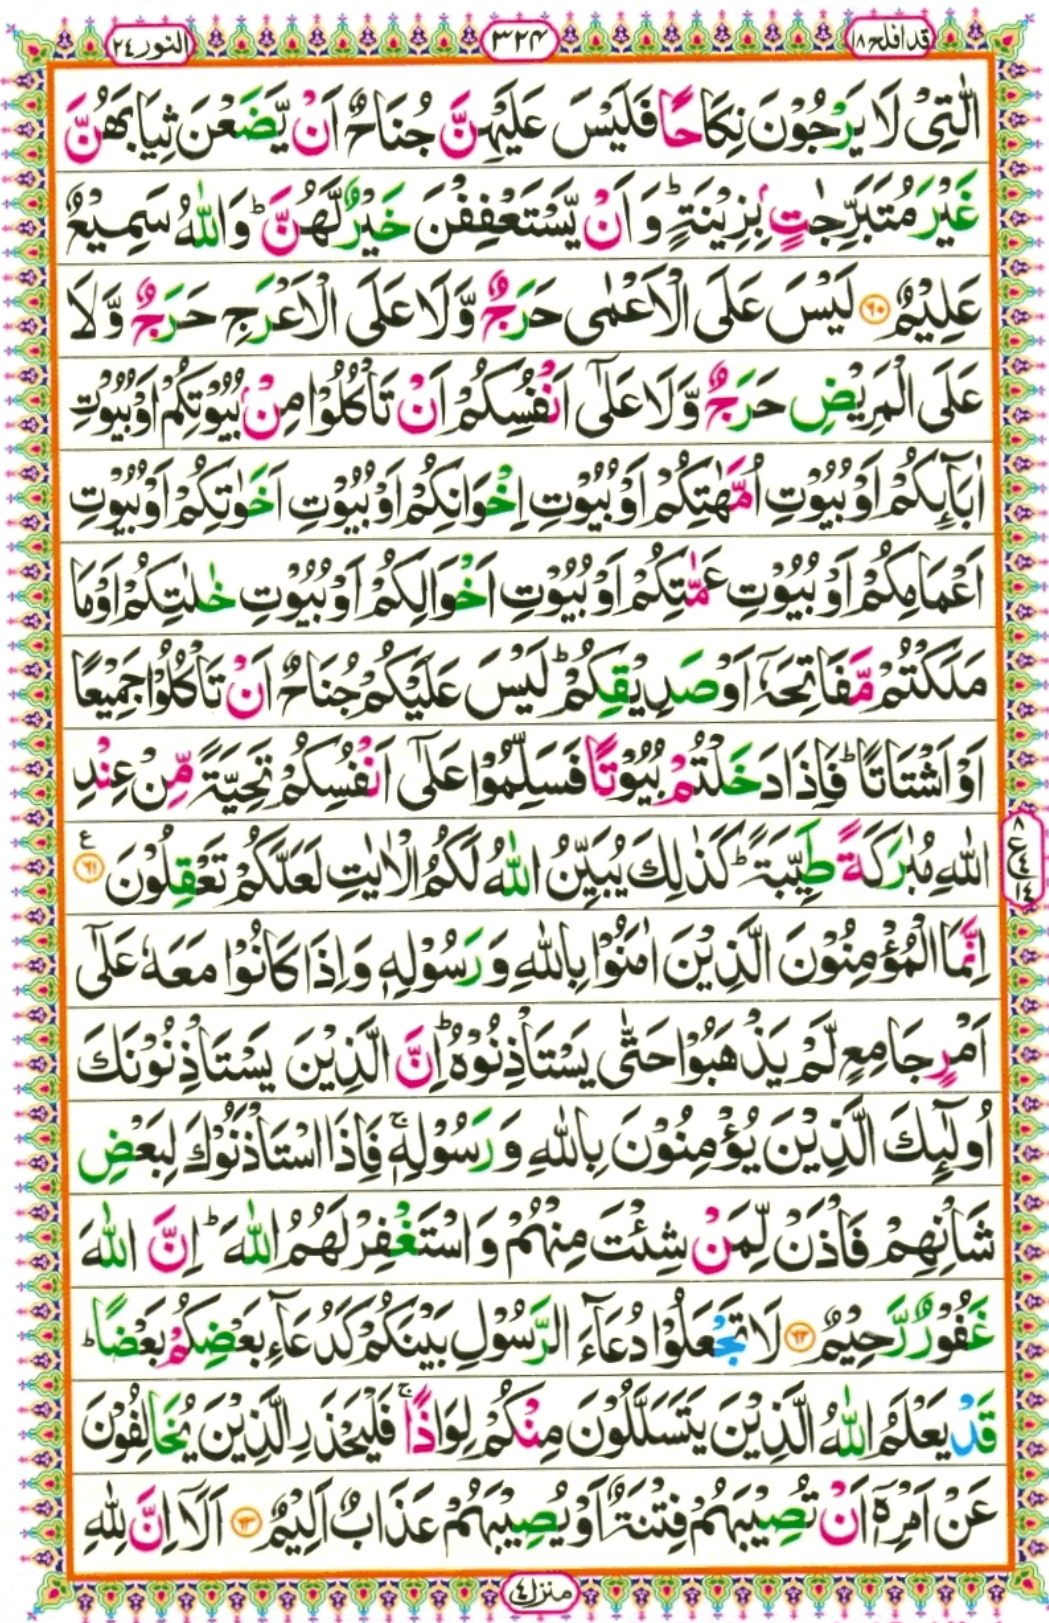 قد افلح ١٨
٣٢٤
النور ٢٤
الّٰتِیْ لَا یَرْجُوْنَ نِکَاحًا فَلَیْسَ عَلَیْہِنَّ جُنَاحٌ اَنْ یَّضَعْنَ ثِیَابَہُنَّ
غَیْرَ مُتَبَرِّجٰتٍۭ بِزِیْنَۃٍ ؕ وَ اَنْ یَّسْتَعْفِفْنَ خَیْرٌ لَّہُنَّ ؕ وَ اللّٰہُ سَمِیْعٌ
عَلِیْمٌ ﴿۶۰﴾ لَیْسَ عَلَی الْاَعْمٰی حَرَجٌ وَّ لَا عَلَی الْاَعْرَجِ حَرَجٌ وَّ لَا
عَلَی الْمَرِیْضِ حَرَجٌ وَّ لَا عَلٰۤی اَنْفُسِکُمْ اَنْ تَاْکُلُوْا مِنْۢ بُیُوْتِکُمْ اَوْ بُیُوْتِ
اٰبَآئِکُمْ اَوْ بُیُوْتِ اُمَّہٰتِکُمْ اَوْ بُیُوْتِ اِخْوَانِکُمْ اَوْ بُیُوْتِ اَخَوٰتِکُمْ اَوْ بُیُوْتِ
اَعْمَامِکُمْ اَوْ بُیُوْتِ عَمّٰتِکُمْ اَوْ بُیُوْتِ اَخْوَالِکُمْ اَوْ بُیُوْتِ خٰلٰتِکُمْ اَوْ مَا
مَلَکْتُمْ مَّفَاتِحَہٗۤ اَوْ صَدِیْقِکُمْ ؕ لَیْسَ عَلَیْکُمْ جُنَاحٌ اَنْ تَاْکُلُوْا جَمِیْعًا
اَوْ اَشْتَاتًا ؕ فَاِذَا دَخَلْتُمْ بُیُوْتًا فَسَلِّمُوْا عَلٰۤی اَنْفُسِکُمْ تَحِیَّۃً مِّنْ عِنْدِ
اللّٰہِ مُبٰرَکَۃً طَیِّبَۃً ؕ کَذٰلِکَ یُبَیِّنُ اللّٰہُ لَکُمُ الْاٰیٰتِ لَعَلَّکُمْ تَعْقِلُوْنَ ﴿۶۱﴾ ع
اِنَّمَا الْمُؤْمِنُوْنَ الَّذِیْنَ اٰمَنُوْا بِاللّٰہِ وَ رَسُوْلِہٖ وَ اِذَا کَانُوْا مَعَہٗ عَلٰۤی
اَمْرٍ جَامِعٍ لَّمْ یَذْہَبُوْا حَتّٰی یَسْتَاْذِنُوْہُ ؕ اِنَّ الَّذِیْنَ یَسْتَاْذِنُوْنَکَ
اُولٰٓئِکَ الَّذِیْنَ یُؤْمِنُوْنَ بِاللّٰہِ وَ رَسُوْلِہٖ ۚ فَاِذَا اسْتَاْذَنُوْکَ لِبَعْضِ
شَاْنِہِمْ فَاْذَنْ لِّمَنْ شِئْتَ مِنْہُمْ وَ اسْتَغْفِرْ لَہُمُ اللّٰہَ ؕ اِنَّ اللّٰہَ
غَفُوْرٌ رَّحِیْمٌ ﴿۶۲﴾ لَا تَجْعَلُوْا دُعَآءَ الرَّسُوْلِ بَیْنَکُمْ کَدُعَآءِ بَعْضِکُمْ بَعْضًا ؕ
قَدْ یَعْلَمُ اللّٰہُ الَّذِیْنَ یَتَسَلَّلُوْنَ مِنْکُمْ لِوَاذًا ۚ فَلْیَحْذَرِ الَّذِیْنَ یُخَالِفُوْنَ
عَنْ اَمْرِہٖۤ اَنْ تُصِیْبَہُمْ فِتْنَۃٌ اَوْ یُصِیْبَہُمْ عَذَابٌ اَلِیْمٌ ﴿۶۳﴾ اَلَاۤ اِنَّ لِلّٰہِ
منزل ٤